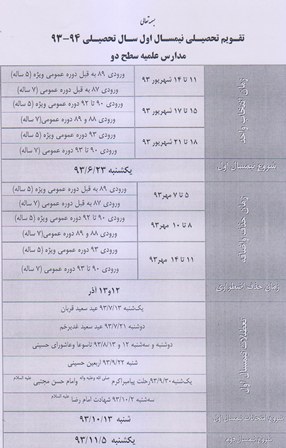 بسمه تعالی
تقویم تحصیلی نیمسال اول سال تحصیلی ۹۴-۹۳
مدارس علمیه سطح دو
زمان انتخاب واحد
۱۱ تا ۱۴ شهریور ۹۳
ورودی ۸۹ به قبل دوره عمومی ویژه (۵ ساله)
ورودی ۸۷ به قبل دوره عمومی (۷ ساله)
۱۵ تا ۱۷ شهریور ۹۳
ورودی ۹۰ تا ۹۲ دوره عمومی ویژه (۵ ساله)
ورودی ۸۸ و ۸۹ دوره عمومی (۷ ساله)
۱۸ تا ۲۱ شهریور ۹۳
ورودی ۹۳ دوره عمومی ویژه (۵ ساله)
ورودی ۹۰ تا ۹۳ دوره عمومی (۷ ساله)
شروع نیمسال اول
یکشنبه ۹۳/۶/۲۳
زمان حذف و اضافه
۵ تا ۷ مهر ۹۳
ورودی ۸۹ به قبل دوره عمومی ویژه (۵ ساله)
ورودی ۸۷ به قبل دوره عمومی (۷ ساله)
۸ تا ۱۰ مهر ۹۳
ورودی ۹۰ تا ۹۲ دوره عمومی ویژه (۵ ساله)
ورودی ۸۸ و ۸۹ دوره عمومی (۷ ساله)
۱۱ تا ۱۴ مهر ۹۳
ورودی ۹۳ دوره عمومی ویژه (۵ ساله)
ورودی ۹۰ تا ۹۳ دوره عمومی (۷ ساله)
زمان حذف اضطراری
۱۲ و ۱۳ آذر
تعطیلات نیمسال اول
یکشنبه ۹۳/۷/۱۳ عید سعید قربان
دوشنبه ۹۳/۷/۲۱ عید سعید غدیرخم
دوشنبه و سه شنبه ۱۲ و ۹۳/۸/۱۳ تاسوعا و عاشورای حسینی
شنبه ۹۳/۹/۲۲ اربعین حسینی
یکشنبه ۹۳/۹/۳۰ رحلت پیامبراکرم صلی الله علیه وآله وامام حسن مجتبی علیه السلام
سه شنبه ۹۳/۱۰/۲ شهادت امام رضا علیه السلام
شنبه ۹۳/۱۰/۱۳
یکشنبه ۹۳/۱۱/۵